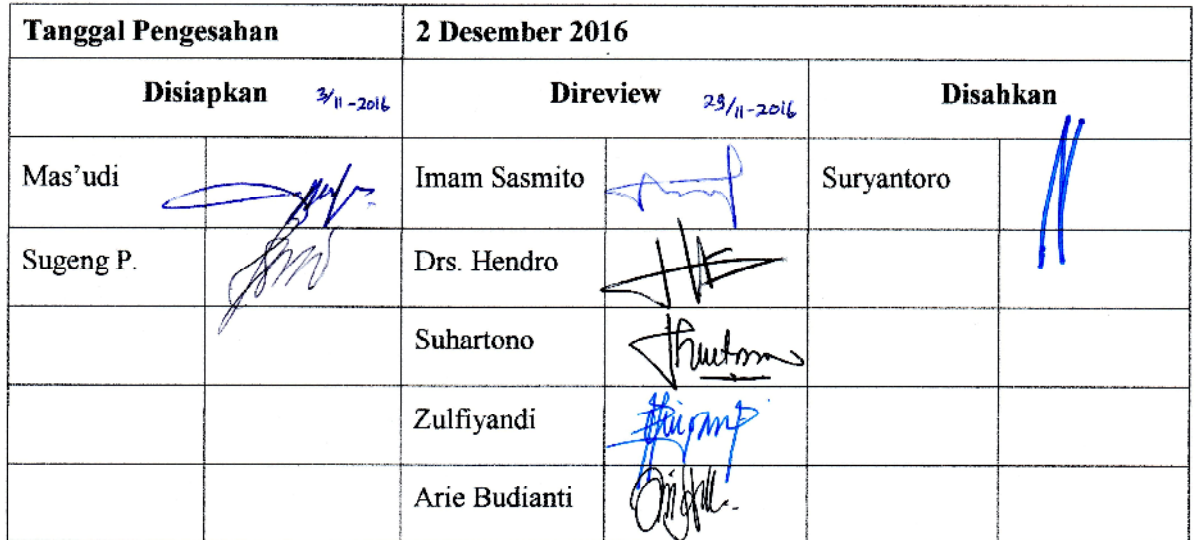 Tanggal Pengesahan 2 Desember 2016
Disiapkan 3/11-2016 Direview 29/11-2016 Disahkan
Mas'udi Imam Sasmito Suryantoro
Sugeng P. Drs. Hendro
Suhartono
Zulfiyandi
Arie Budianti